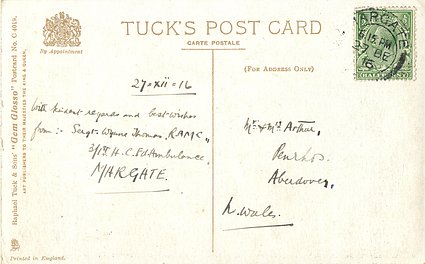 TUCK'S POST CARD
CARTE POSTALE
By Appointment
(FOR ADDRESS ONLY)
Raphael Tuck & Sons' "Gem Glosso" Postcard No.
ART PUBLISHERS TO THEIR MAJESTIES THE KING & QUEEN.
Printed in England.
27=XII=16
With kindest regards and best wishes
from :- Sergt. Wynne Thomas, RAMC,
3/1st H.C. Fd Ambulance,
MARGATE.
Mr & Mrs Arthur,
Penrhos,
Aberdovey,
N. Wales.
ARGATE
6.15 PM
27 DE
16